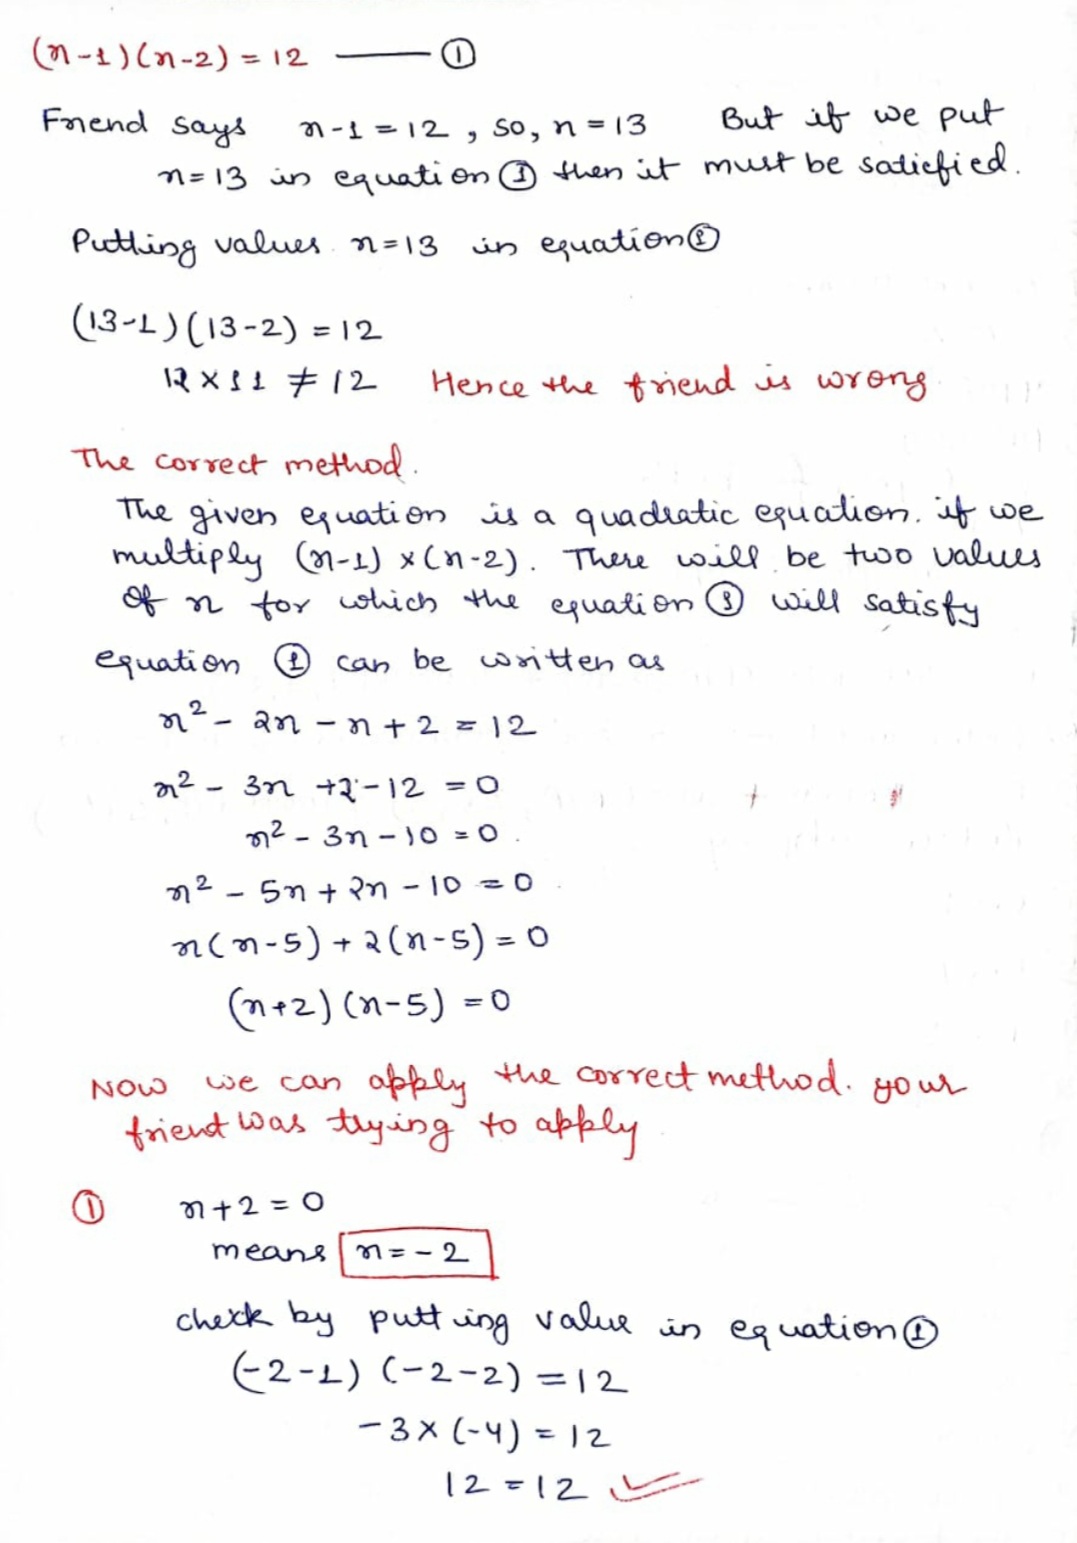 (n-1)(n-2) = 12 —— ①
Friend says n-1 = 12 , so, n = 13 But if we put
n=13 in equation ① then it must be satisfied.
Putting values n=13 in equation ①
(13-1)(13-2) = 12
12 × 11 ≠ 12 Hence the friend is wrong
The correct method.
The given equation is a quadratic equation. if we
multiply (n-1) × (n-2). There will be two values
of n for which the equation ① will satisfy
equation ① can be written as
n² - 2n - n + 2 = 12
n² - 3n + 2 - 12 = 0
n² - 3n - 10 = 0.
n² - 5n + 2n - 10 = 0
n(n-5) + 2(n-5) = 0
(n+2)(n-5) = 0
NOW we can apply the correct method. your
friend was trying to apply
① n+2 = 0
means n = -2
check by putting value in equation ①
(-2-1) (-2-2) = 12
-3 × (-4) = 12
12 = 12 ✓